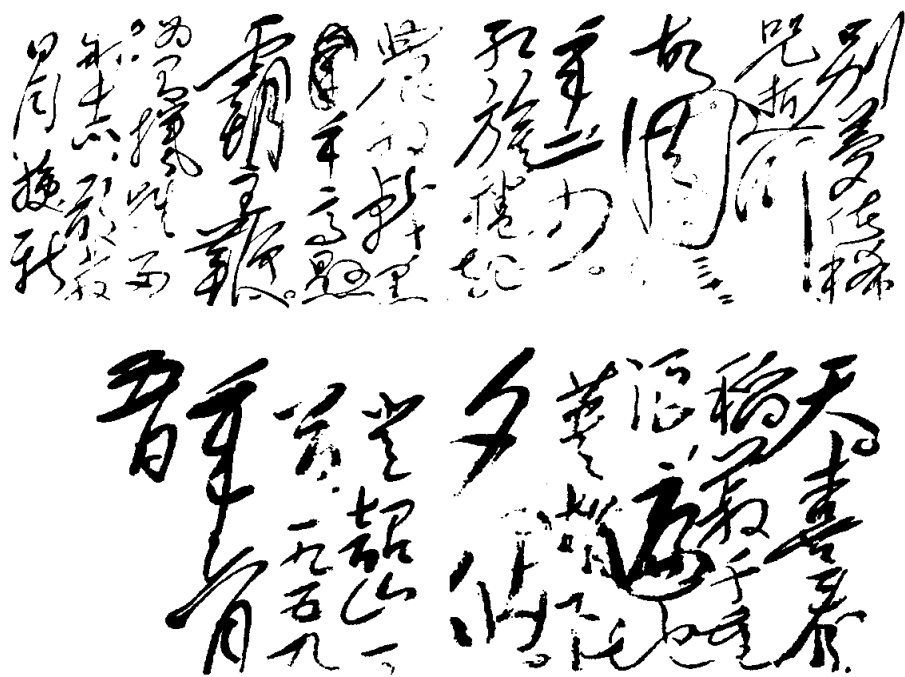 别夢依稀
咒逝川
故園三十二
年前。
红旗捲起
農奴戟黑
手高懸
霸主鞭。
为有犧牲多
壮志,敢教
日月换新
天。喜看
稻菽千重
浪,遍地
英雄下
夕烟。
韶山一
首。一九五九
年六月